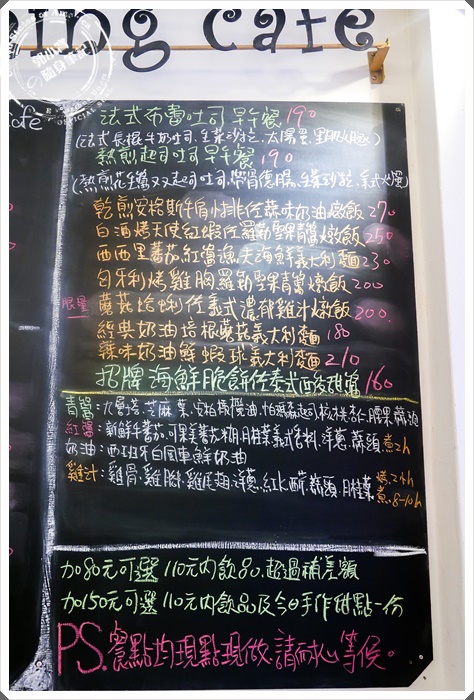 ing cafe
cafe
法式布蕾吐司早午餐 190
(法式長棍牛奶吐司、生菜沙拉、太陽蛋、里肌火腿)
熱煎起司吐司早午餐 190
(熱煎花生醬双叉起司吐司、帶骨德腸、生菜沙拉、美式炒蛋)
乾煎安格斯牛肩小排佐蒜味奶油燉飯 270
白酒烤天使紅蝦佐羅勒堅果青醬燉飯 250
西西里蕃茄紅醬漁夫海鮮義大利麵 230
匈牙利烤雞胸羅勒堅果青醬燉飯 200
限量 蘑菇蛤蜊佐義式濃郁雞汁燉飯 200.
經典奶油培根蘑菇義大利麵 180
辣味奶油鮮蝦球義大利麵 210
招牌海鮮脆餅佐泰式酸甜醬 160
青醬:九層塔、芝麻葉、冷粹橄欖油、帕瑪森起司、核桃、杏仁、腰果、蒜頭
紅醬:新鮮牛蕃茄、可果美蕃茄糊、月桂葉、義式香料、洋蔥、蒜頭.煮2h
奶油:西班牙白風車鮮奶油
雞汁:雞骨、雞腳、雞尾翅、洋蔥、紅蘿、西芹、蒜頭、月桂葉 烤.2h
煮.8-10h
加80元可選 110元內飲品.超過補差額
加150元可選 110元內飲品及今日手作甜點一份
PS.餐點均現點現做.請耐心等候。